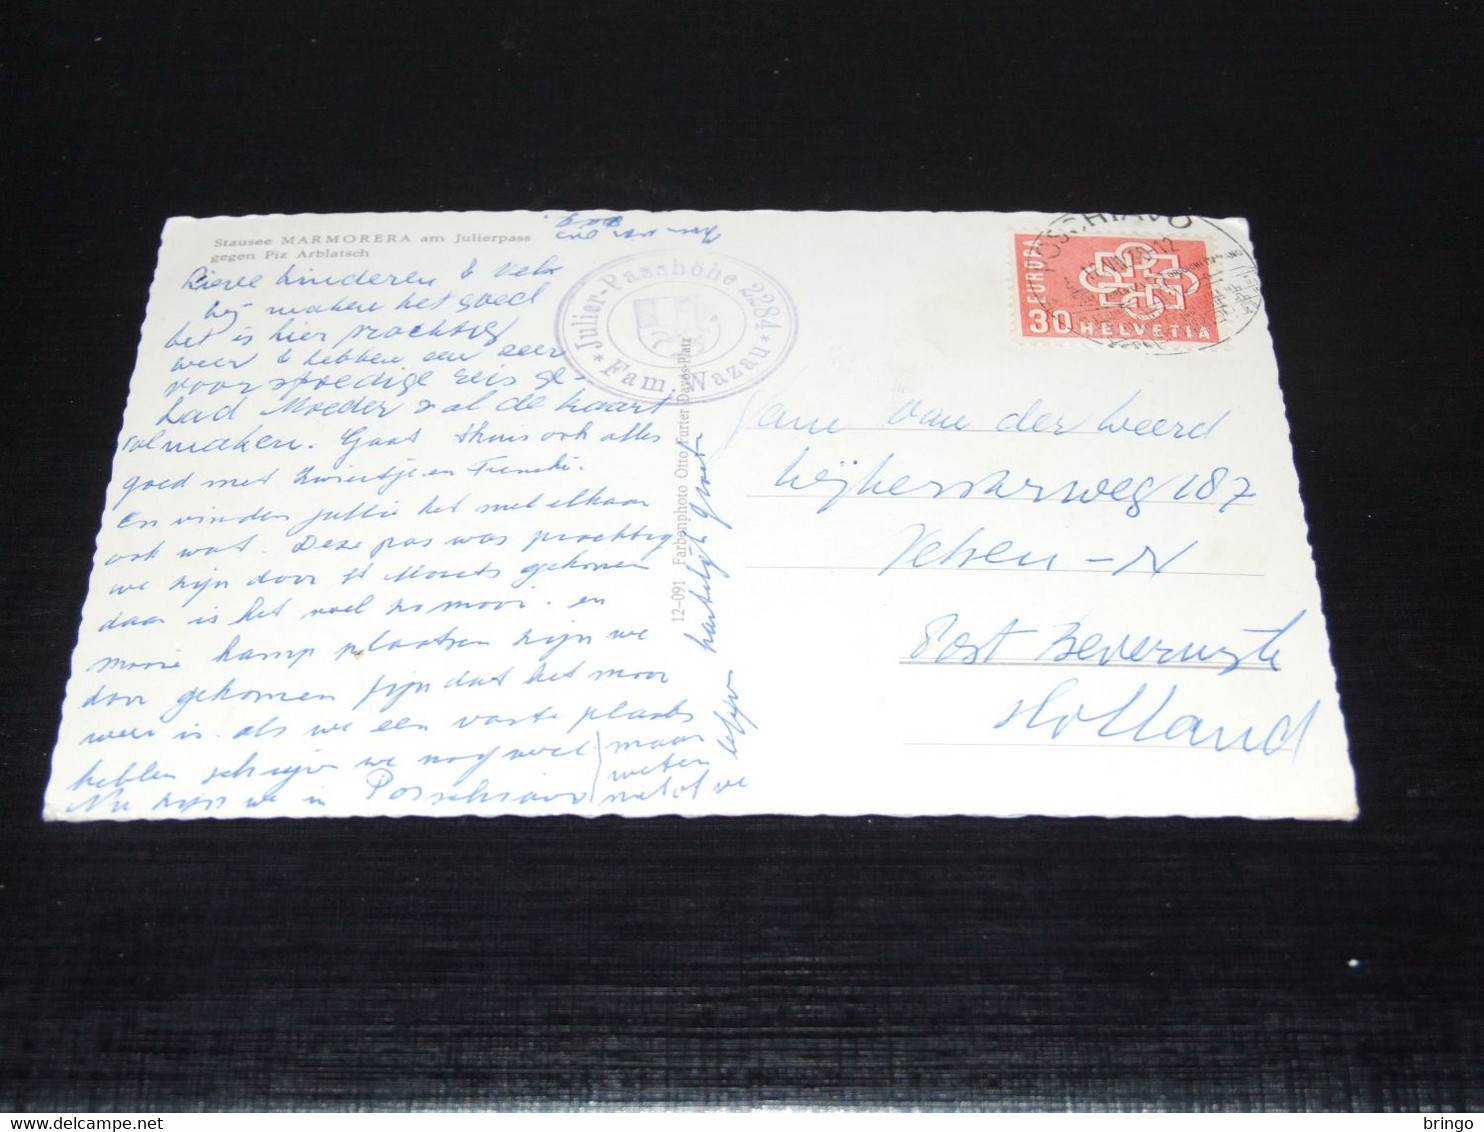 Stausee MARMORERA am Julierpass
gegen Piz Arblatsch
Lieve kinderen &
Wij maken het goed
het is hier prachtig
weer & hebben een zeer
voorspoedige reis ge-
had Moeder zal de kaart
vol maken. Gaat thuis ook alles
goed met en
En vinden jullie het met elkaar
ook wat. Deze pas was prachtig
we zijn door St Moritz gekomen
daar is het veel zo mooi. en
mooie kamp plaatsen zijn we
door gekomen fijn dat het mooi
weer is. als we een vaste plaats
hebben schrijven we nog wel maar
Nu zijn we in Posschiavo weten
niet of we
blijven hartelijk groet
Julier-Passhöhe 2284
Fam. Wazau
12-091 Farbenphoto Otto Furter Davos-Platz
POSCHIAVO
EUROPA
30 HELVETIA
Fam van der Weerd
Wijkerstraatweg 187
Velsen - N
Post Beverwijk
Holland
bringo